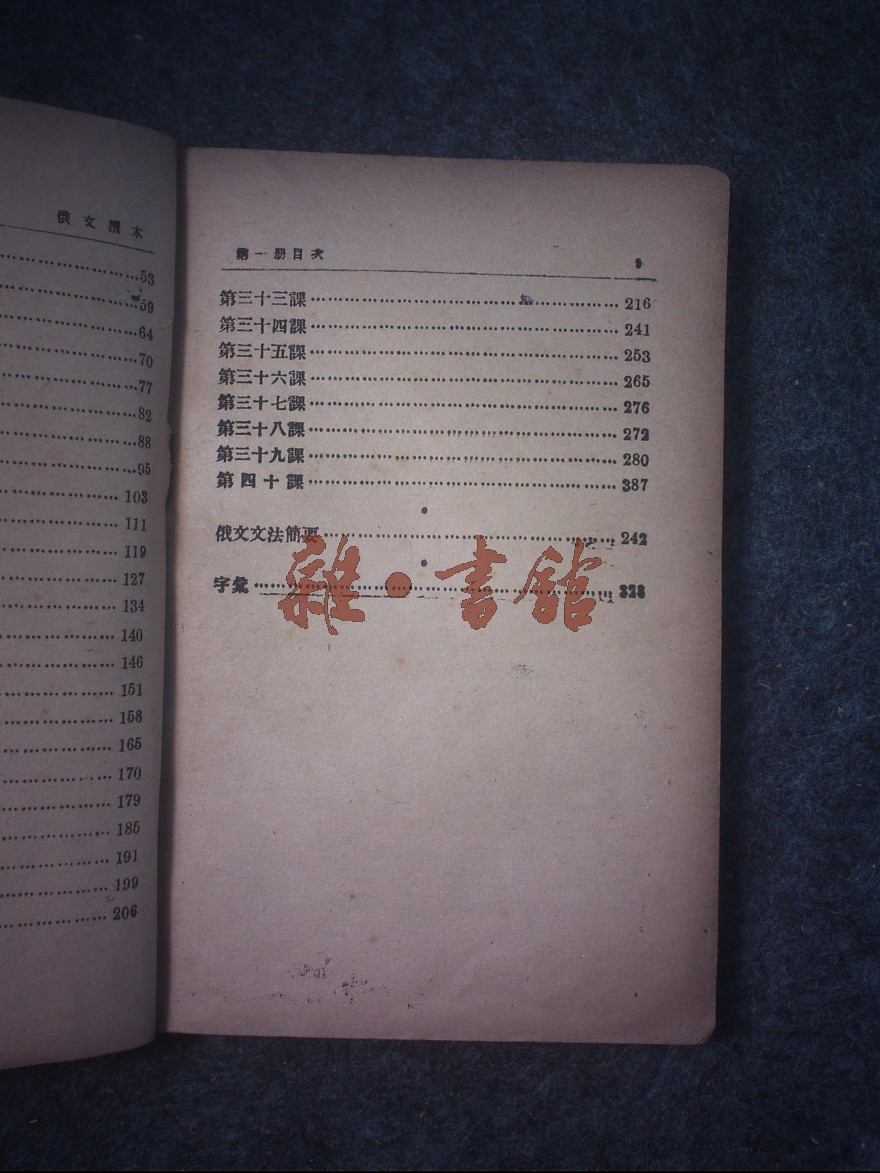 俄文讀本
53
59
64
70
77
82
88
95
103
111
119
127
134
140
146
151
158
165
170
179
185
191
199
206
第一册目次 9
第三十三課 216
第三十四課 241
第三十五課 253
第三十六課 265
第三十七課 276
第三十八課 272
第三十九課 280
第四十課 387
俄文文法簡要 242
字彙 328
雜·書館